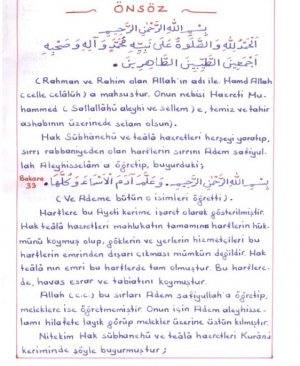 ÖNSÖZ
بِسْمِ اللهِ الرَّحْمٰنِ الرَّحِيمِ
اَلْحَمْدُ لِلّٰهِ وَالصَّلٰوةُ عَلٰى نَبِيِّهِ مُحَمَّدٍ وَآلِهِ وَصَحْبِهِ
اَجْمَعِينَ الطَّيِّبِينَ الطَّاهِرِينَ.
(Rahman ve Rahim olan Allah'ın adı ile. Hamd Allah
(celle celâlüh) a mahsustur. Onun nebisi Hazreti Mu-
hammed (Sallallâhü aleyhi ve sellem) e, temiz ve tahir
ashabının üzerinde selam olsun).
Hak Sübhânehü ve teâlâ hazretleri herşeyi yaratıp,
sırrı rabbaniyeden olan harflerin sırrını Adem safiyul-
lah Aleyhisselâm a öğretip, buyurduki;
Bakara
33
بِسْمِ اللهِ الرَّحْمٰنِ الرَّحِيمِ. وَعَلَّمَ آدَمَ الْاَسْمَاءَ كُلَّهَا.
(Ve Ademe bütün o isimleri öğretti).
Harflere bu Ayeti kerime işaret olarak gösterilmiştir.
Hak teâlâ hazretleri mahlukatın tamamına harflerin hük-
münü koymuş olup, göklerin ve yerlerin hizmetçileri bu
harflerin emrinden dışarı çıkması mümkün değildir. Hak
teâlâ nın emri bu harflerde tam olmuştur. Bu harflerc-
de, havas esrar ve tabiatını koymuştur.
Allah (c.c.) bu sırları Adem safiyullah a öğretip,
meleklere ise öğretmemiştir. Onun için Adem aleyhisse-
lamı hilafete layık görüp melekler üzerine üstün kılmıştır.
Nitekim Hak sübhânehü ve teâlâ hazretleri Kurânı
keriminde şöyle buyurmuştur;